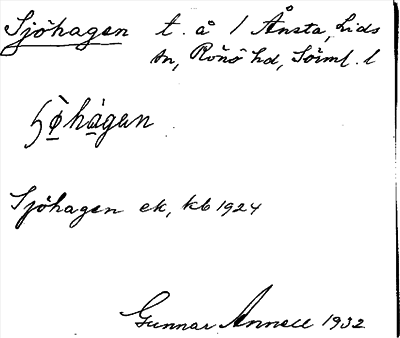 Sjöhagen t. å 1 Ånsta, Lids
sn, Rönö hd, Sörml. l
Sjöhagen ek, kb 1924
Gunnar Annell 1932